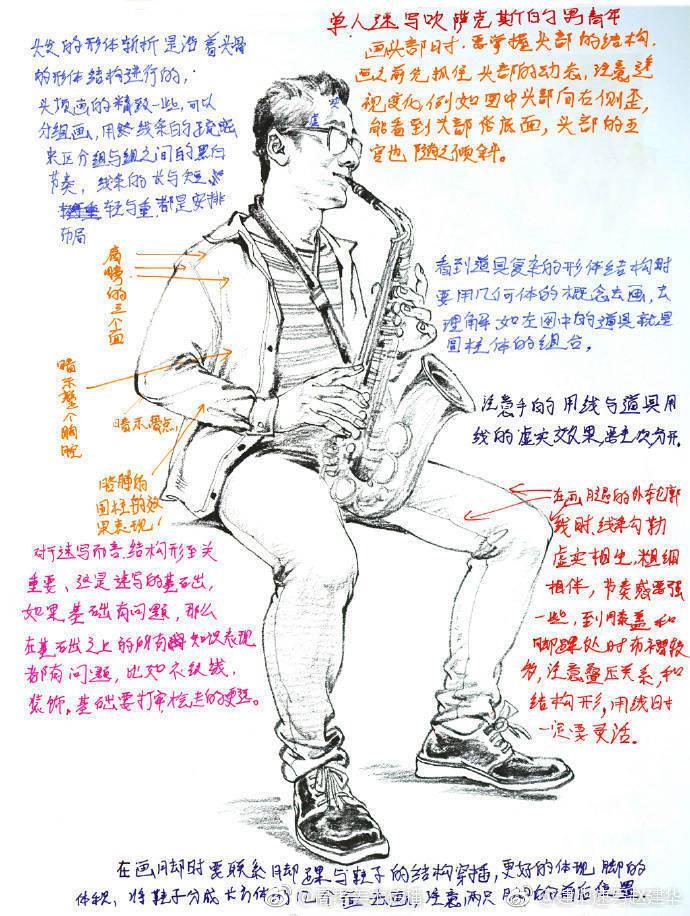 单人速写吹萨克斯的男青年
画头部时,要掌握头部的结构.
画之前先抓住头部的动态,注意透
视变化,例如图中头部向右侧歪,
能看到头部俗底面,头部的五
官也随之倾斜。
头发的形体转折是沿着头骨
的形体结构进行的,
头顶画的精致一些,可以
分组画,用线条的
来区分组与组之间的黑白
节奏,线条的长与短
轻与重都是安排
布局
肩膀的三个面
暗示整个胸腔
暗示骨点
胳膊的
圆柱的效
果表现!
看到道具复杂的形体结构时
要用几何体的概念去画,去
理解.如左图中的道具就是
圆柱体的组合。
注意手的用线与道具用
线的虚实效果,主次分开.
在画腿的外轮廓
线时,线条勾勒
虚实相生,粗细
相伴,节奏感要强
一些,到膝盖和
脚踝处时布褶较
多,注意叠压关系,和
结构形,用线时
一定要灵活.
对于速写而言,结构形至关
重要、这是速写的基础,
如果基础有问题,那么
在基础之上的所有知识表现
都有问题,比如衣纹线.
装饰.基础要打牢松走的更远。
在画脚时要联系脚踝与鞋子的结构穿插,更好的体现脚的
体积,将鞋子分成长方体的 面去画,注意两只脚的前后位置.